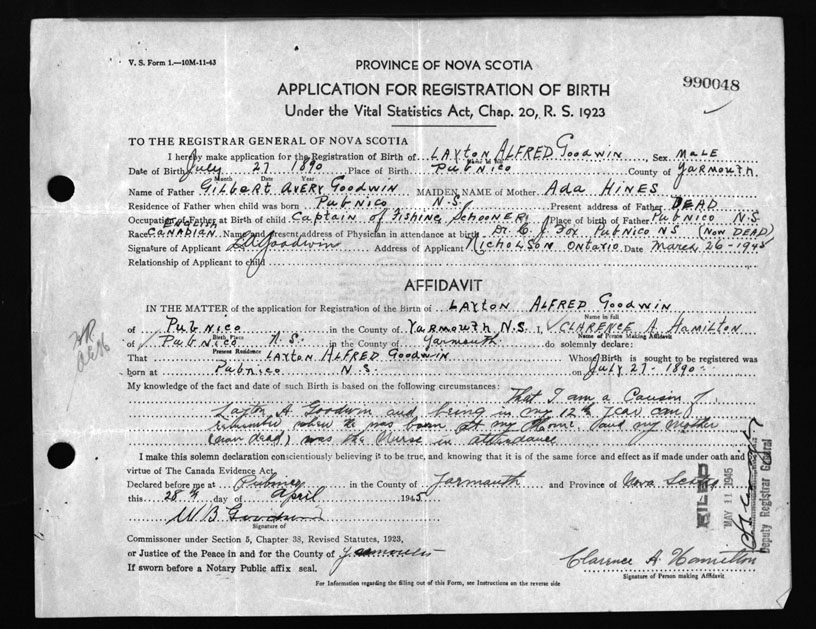 V. S. Form 1.—10M-11-43
PROVINCE OF NOVA SCOTIA
990048
APPLICATION FOR REGISTRATION OF BIRTH
Under the Vital Statistics Act, Chap. 20, R. S. 1923
TO THE REGISTRAR GENERAL OF NOVA SCOTIA
I hereby make application for the Registration of Birth of LAYTON ALFRED GOODWIN Sex MALE
Name in full
Date of Birth July 27 1890 Place of Birth PUBNICO County of YARMOUTH
Month Date Year
Name of Father GILBERT AVERY GOODWIN MAIDEN NAME of Mother ADA HINES
Residence of Father when child was born PUBNICO N.S. Present address of Father DEAD
Occupation of Father at Birth of child CAPTAIN OF FISHING SCHOONER Place of birth of Father PUBNICO N.S.
ENGLISH
Race CANADIAN Name and present address of Physician in attendance at birth Dr. C. J. FOX PUBNICO NS (NOW DEAD)
Signature of Applicant LAGoodwin Address of Applicant NICHOLSON ONTARIO Date MARCH 26-1945
Relationship of Applicant to child
AFFIDAVIT
IN THE MATTER of the application for Registration of the Birth of LAYTON ALFRED GOODWIN
Name in full
of PUBNICO in the County of YARMOUTH N.S. I, CLARENCE A HAMILTON
Birth Place Name of Person Making Affidavit
of PUBNICO N.S. in the County of Yarmouth do solemnly declare:
Present Residence
That LAYTON ALFRED GOODWIN Whose Birth is sought to be registered was
born at PUBNICO N.S. on July 27-1890-
My knowledge of the fact and date of such Birth is based on the following circumstances: That I am a Cousin of
Layton A. Goodwin and being in my 12th year can
remember when he was born at my Home and my Mother
(now dead) was the Nurse in attendance
I make this solemn declaration conscientiously believing it to be true, and knowing that it is of the same force and effect as if made under oath and
virtue of The Canada Evidence Act.
Declared before me at Pubnico in the County of Yarmouth and Province of Nova Scotia
this 28th day of April 1945
W B Goodwin
Signature of
Commissioner under Section 5, Chapter 38, Revised Statutes, 1923,
or Justice of the Peace in and for the County of Yarmouth
If sworn before a Notary Public affix seal.
Clarence A. Hamilton
Signature of Person making Affidavit
For Information regarding the filling out of this Form, see Instructions on the reverse side
FILED
MAY 11 1945
Deputy Registrar General